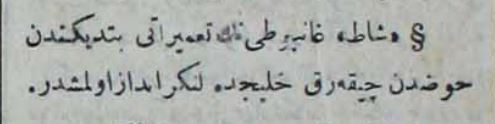 § «شاط» غانبوطی‌نك تعمیراتی بتدیكندن
حوضدن چیقه‌رق خلیجده لنكر انداز اولمشدر.